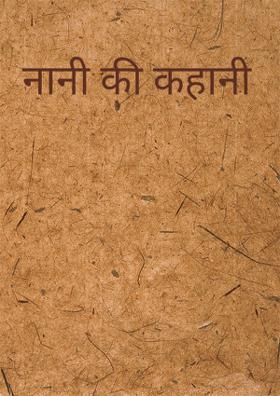 नानी की कहानी